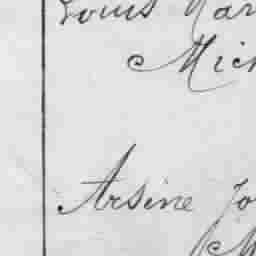 Louis Nar
Mich
Arsine Jo
M